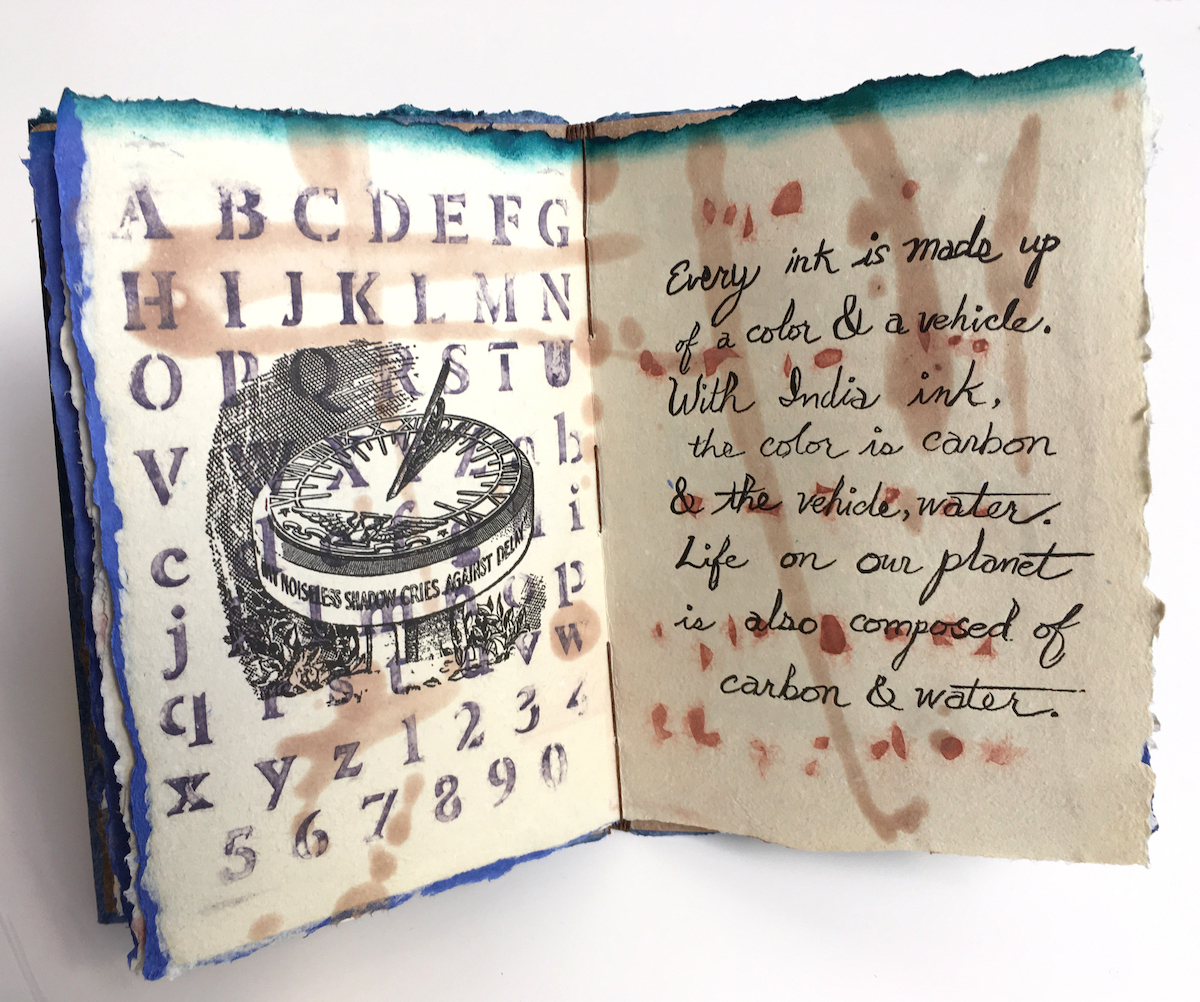 A B C D E F G
H I J K L M N
O P Q R S T U
V W X Y Z a b
c d e f g h i
j k l m n o p
q r s t u v w
x y z 1 2 3 4
5 6 7 8 9 0
MY NOISELESS SHADOW CRIES AGAINST DELAY
Every ink is made up
of a color & a vehicle.
With India ink,
the color is carbon
& the vehicle, water.
Life on our planet
is also composed of
carbon & water.